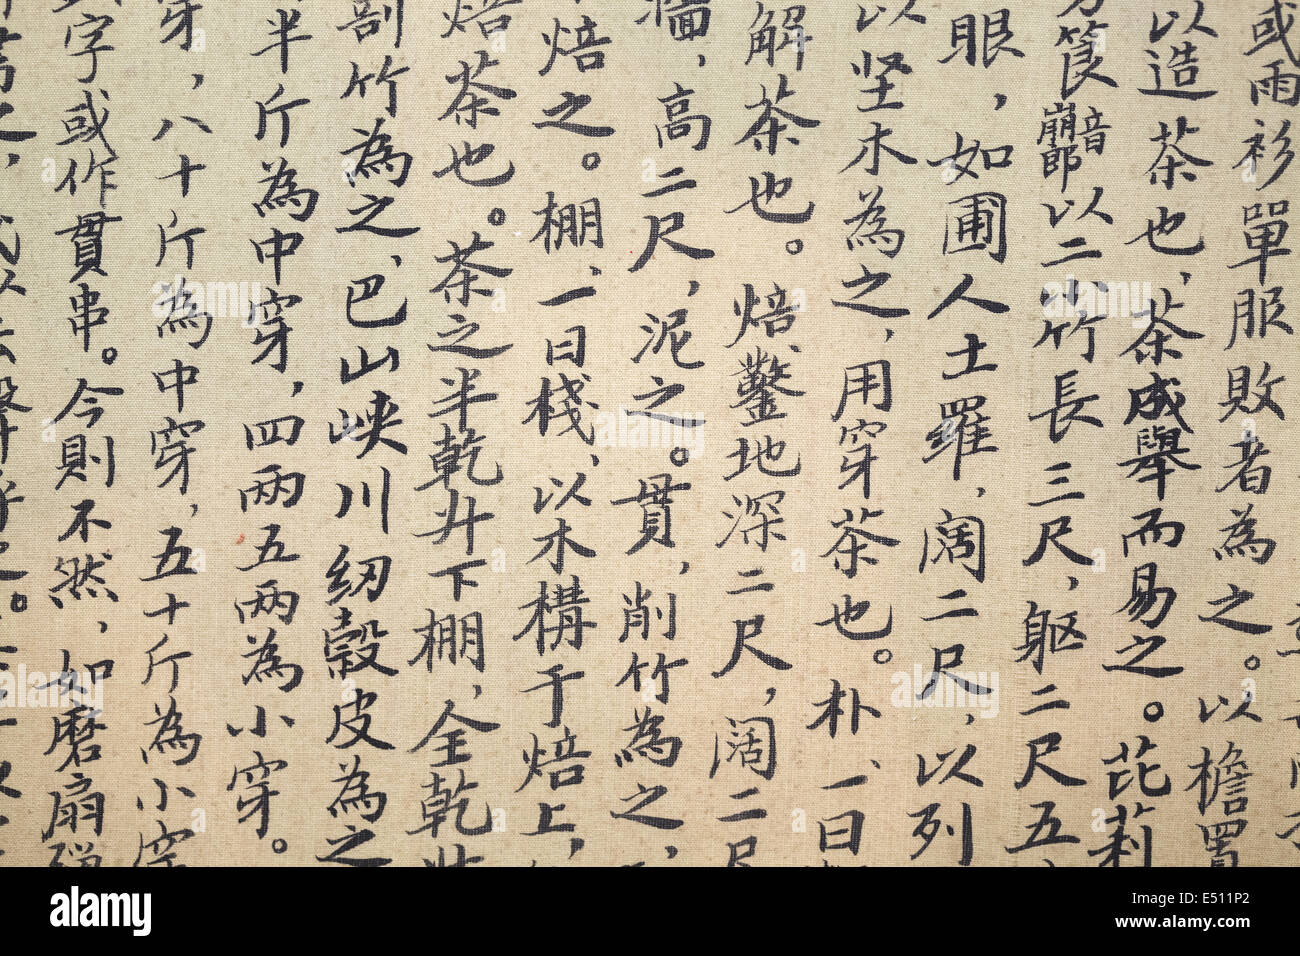 或雨衫單服敗者為之。以檐置
以造茶也，茶成舉而易之。芘莉
筤崩音郎以二小竹長三尺，躯二尺五
眼，如圃人土羅，阔二尺，以列
以坚木為之，用穿茶也。朴、一曰
解茶也。焙、鑿地深二尺，濶二尺
墙，高二尺，泥之。貫，削竹為之，
焙之。棚、一曰棧，以木構于焙上，
焙茶也。茶之半乾升下棚，全乾升
剖竹為之、巴山峡川紉穀皮為之
半斤為中穿，四兩五兩為小穿。
穿，八十斤為中穿，五十斤為小穿
字或作貫串。今則不然，如磨扇彈
alamy stock photo
E511P2
www.alamy.com